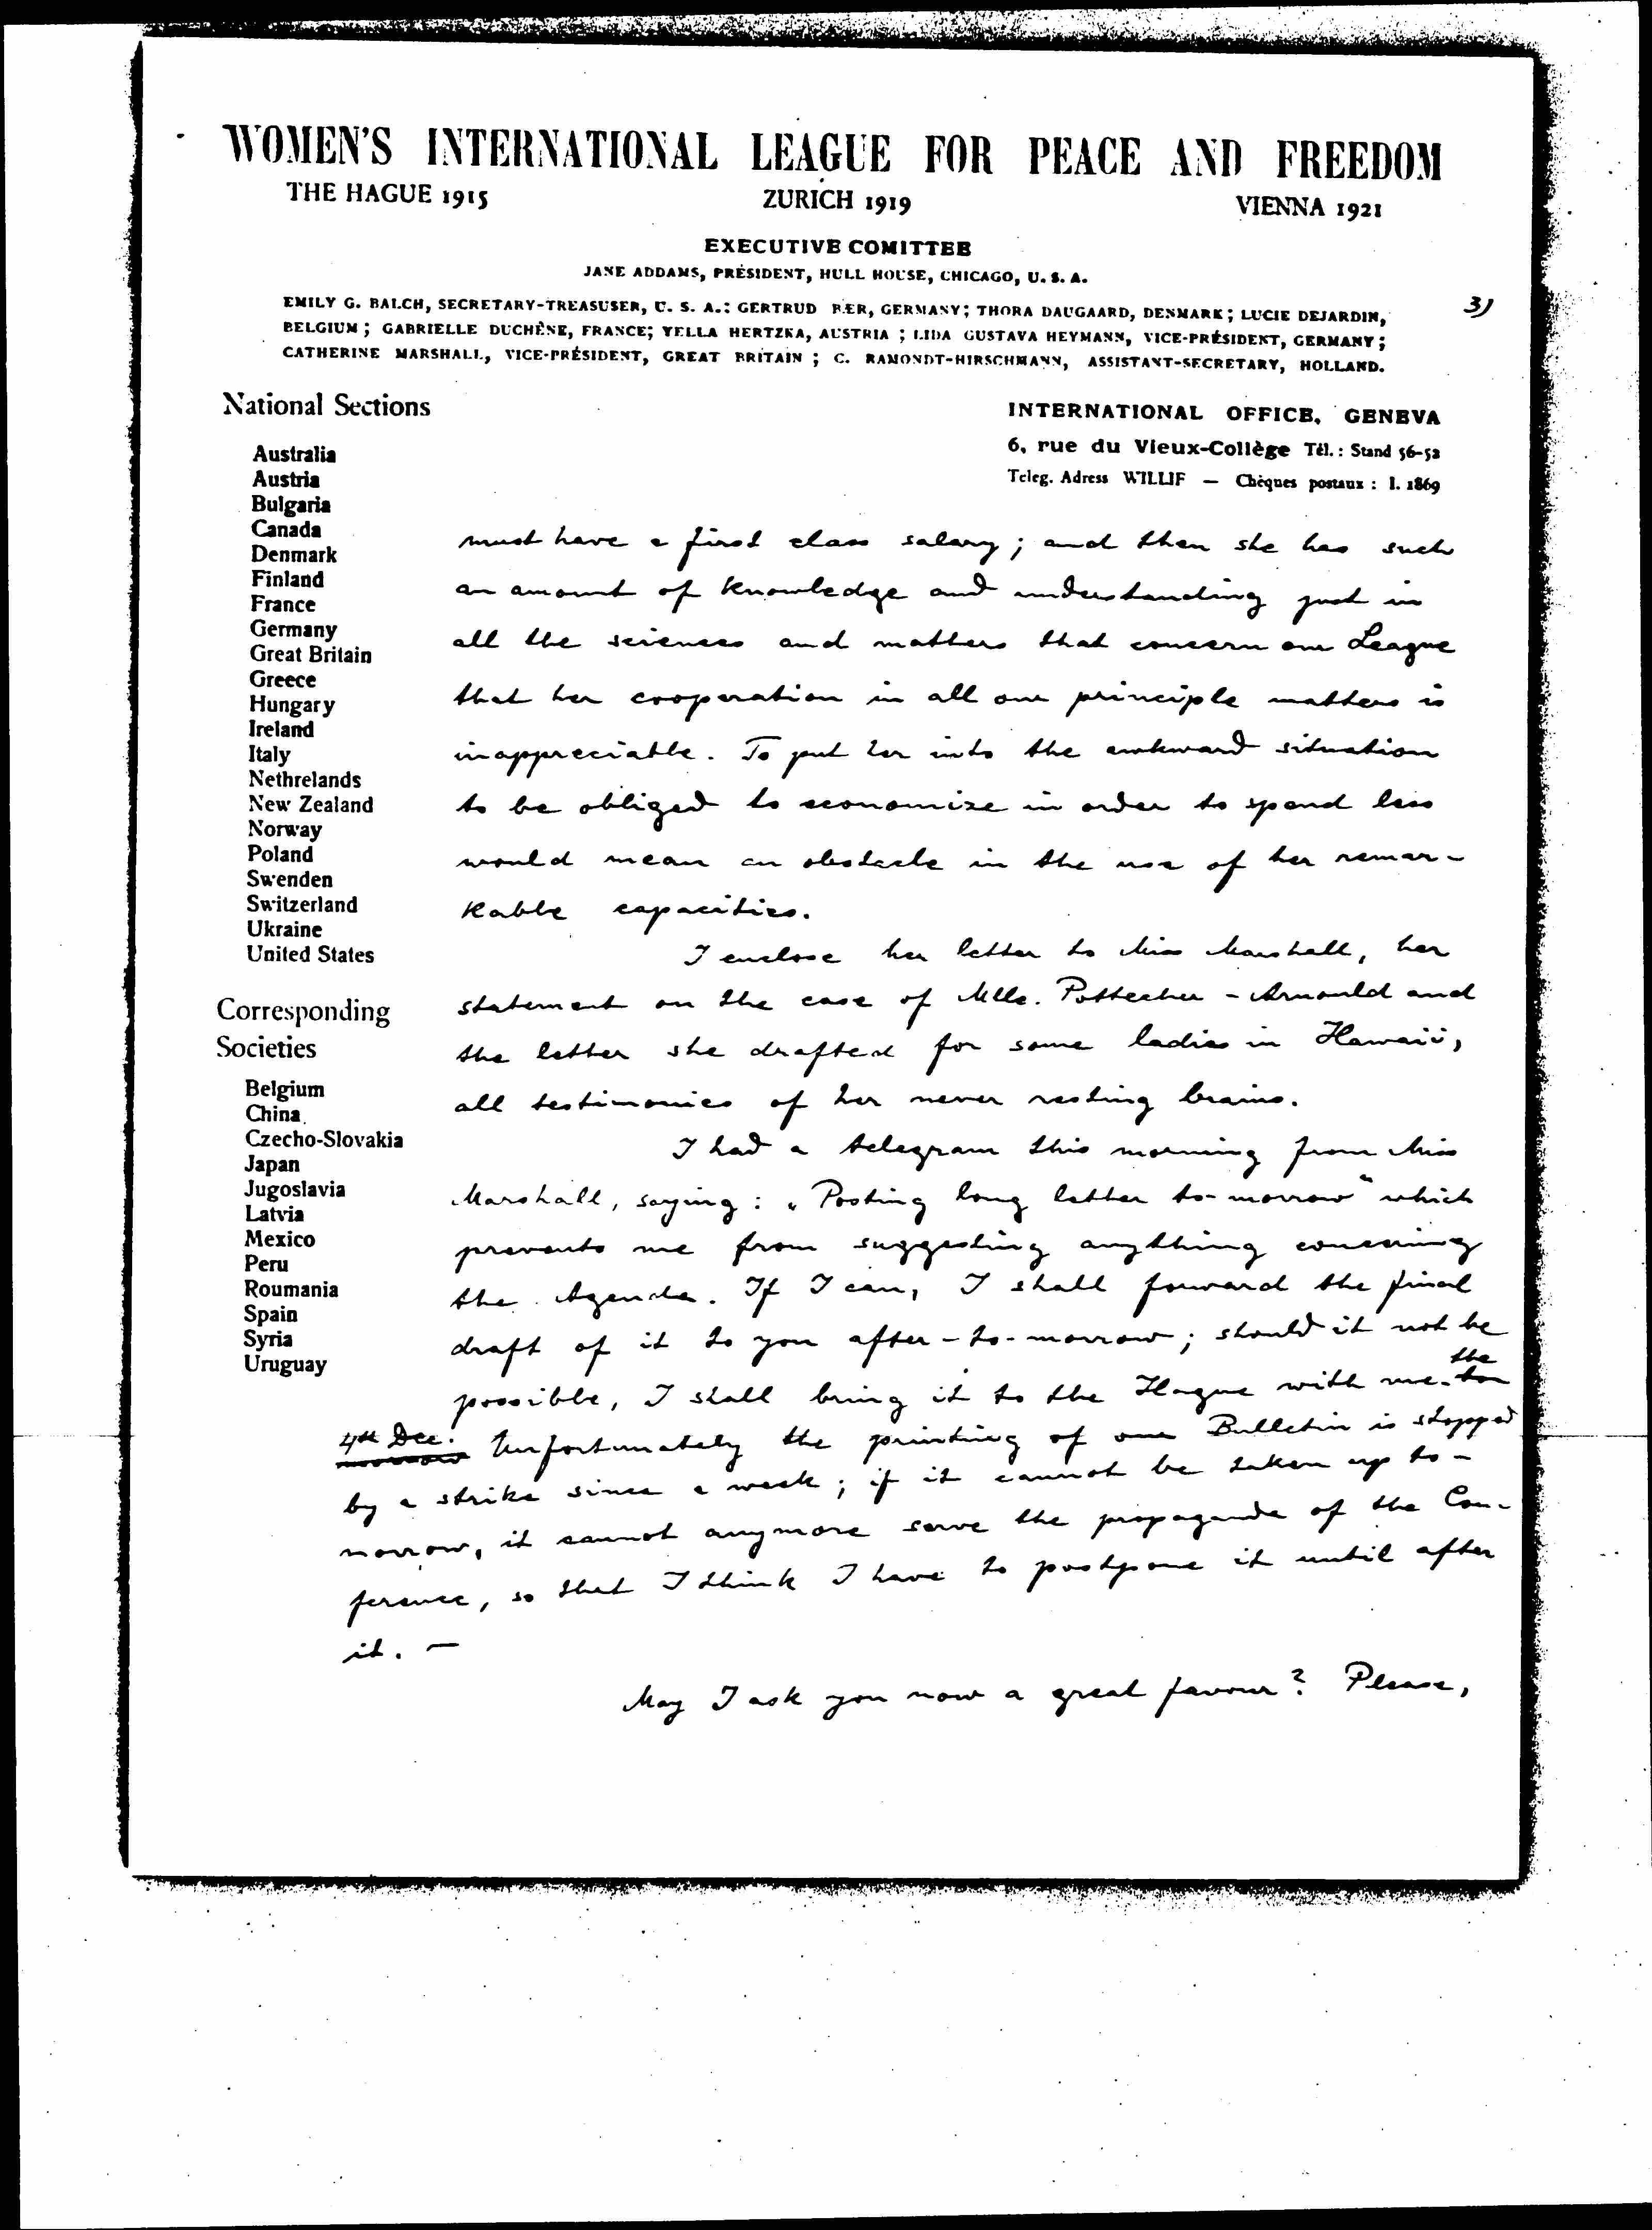 WOMEN'S INTERNATIONAL LEAGUE FOR PEACE AND FREEDOM
THE HAGUE 1915 ZURICH 1919 VIENNA 1921
EXECUTIVE COMITTEE
JANE ADDAMS, PRÉSIDENT, HULL HOUSE, CHICAGO, U. S. A.
3)
EMILY G. BALCH, SECRETARY-TREASUSER, U. S. A.: GERTRUD BÆR, GERMANY; THORA DAUGAARD, DENMARK; LUCIE DEJARDIN,
BELGIUM; GABRIELLE DUCHÊNE, FRANCE; YELLA HERTZKA, AUSTRIA; LIDA GUSTAVA HEYMANN, VICE-PRÉSIDENT, GERMANY;
CATHERINE MARSHALL, VICE-PRÉSIDENT, GREAT BRITAIN; C. RAMONDT-HIRSCHMANN, ASSISTANT-SECRETARY, HOLLAND.
INTERNATIONAL OFFICE, GENEVA
6, rue du Vieux-Collège Tél.: Stand 56-52
Teleg. Adress WILLIF — Chèques postaux: I. 1869
National Sections
Australia
Austria
Bulgaria
Canada
Denmark
Finland
France
Germany
Great Britain
Greece
Hungary
Ireland
Italy
Nethrelands
New Zealand
Norway
Poland
Swenden
Switzerland
Ukraine
United States
Corresponding
Societies
Belgium
China
Czecho-Slovakia
Japan
Jugoslavia
Latvia
Mexico
Peru
Roumania
Spain
Syria
Uruguay
must have a first class salary; and then she has such
an amount of knowledge and understanding just in
all the sciences and matters that concern our League
that her cooperation in all our principle matters is
inappreciable. To put her into the awkward situation
to be obliged to economize in order to spend less
would mean an obstacle in the use of her remar-
kable capacities.
I enclose her letter to Miss Marshall, her
statement on the case of Mlle. Pottecher-Arnould and
the letter she drafted for some ladies in Hawaii,
all testimonies of her never resting brains.
I had a telegram this morning from Miss
Marshall, saying: „Posting long letter to-morrow" which
prevents me from suggesting anything concerning
the Agenda. If I can, I shall forward the final
draft of it to you after-to-morrow; should it not be
possible, I shall bring it to the Hague with me. to the
morrow 4th Dec. Unfortunately the printing of our Bulletin is stopped
by a strike since a week; if it cannot be taken up to-
morrow, it cannot anymore serve the propaganda of the Con-
ference, so that I think I have to postpone it until after
it. —
May I ask you now a great favour? Please,